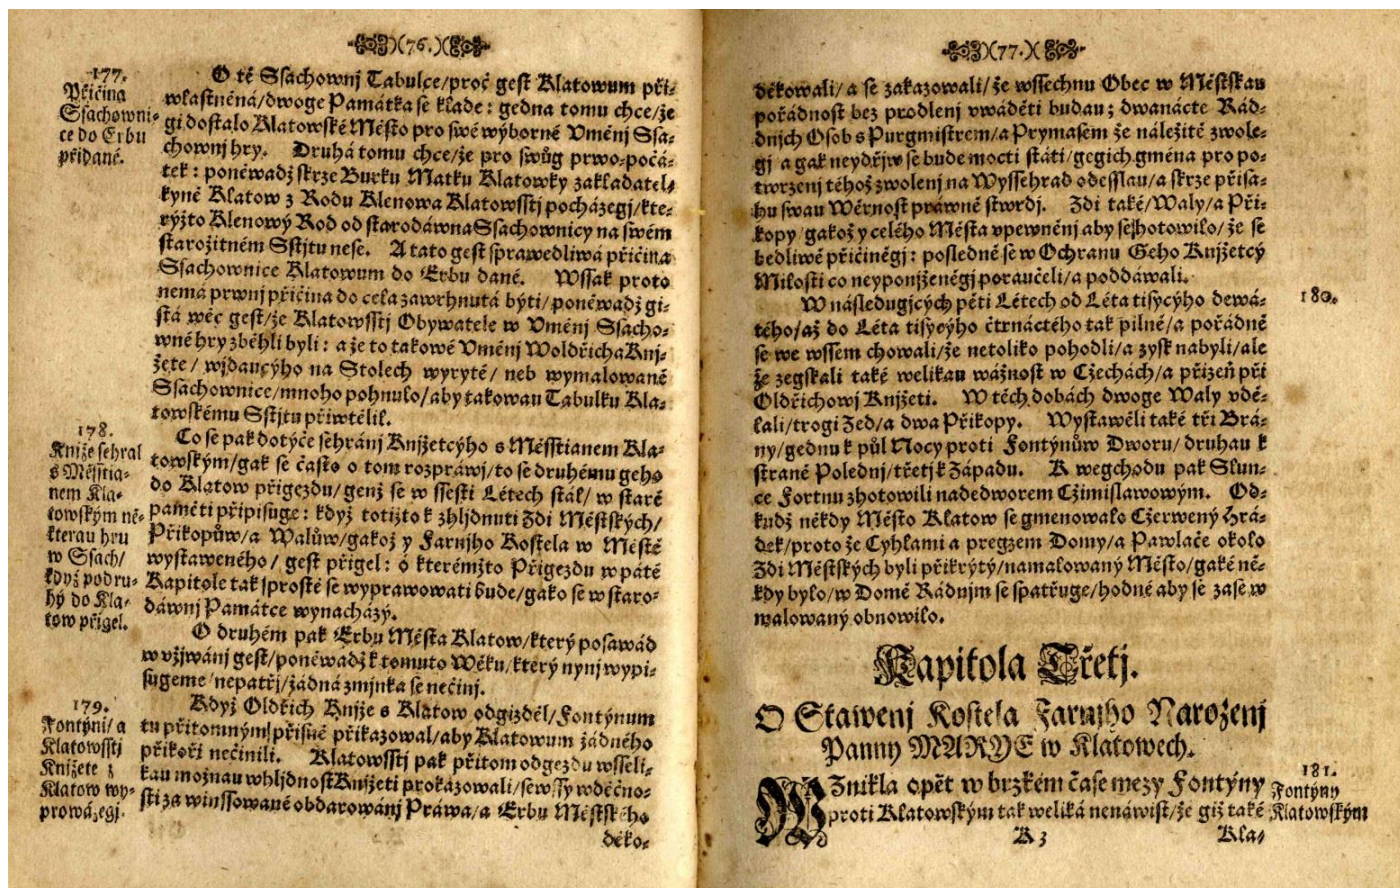 (76.)
177.
Přičina
Ssachowni-
ce do Erbu
přidané.
O té Ssachownj Tabulce/proč gest Klatowum při-
wlastněná/dwoge Památka se klade: gedna tomu chce/že
gi dostalo Klatowské Město pro swé wýborné Vměnj Ssa-
chownj hry. Druhá tomu chce/že pro swůg prwo-počá-
tek: poněwadž skrze Burku Matku Klatowky zakladatel-
kyně Klatow z Rodu Klenowa Klatowsstj pocházegj/kte-
rýžto Klenowý Rod od starodáwna Ssachownicy na swém
starožitném Sstjtu nese. A tato gest sprawedliwá přičina
Ssachownice Klatowum do Erbu dané. Wssak proto
nemá prwnj přičina do cela zawrhnutá býti/poněwadž gi-
stá wěc gest/že Klatowsstj Obywatele w Vměnj Ssacho-
wné hry zběhli byli: a že to takowé Vměnj Woldřicha Knj-
žete/ wjdaucýho na Stolech wyryté/ neb wymalowané
Ssachownice/mnoho pohnulo/aby takowau Tabulku Kla-
towskému Sstjtu přiwtělil.
178.
Kniže sehral
s Měsstia-
nem Kla-
towským ně-
kterau hru
w Ssach/
když podru-
hý do Kla-
tow přigel.
Co se pak dotýče sehránj Knjžetcýho s Měsstianem Kla-
towským/gak se často o tom rozpráwj/to se druhému geho
do Klatow přigezdu/genž se w ssesti Létech stál/ w staré
paměti připisuge: když totižto k zhljdnuti Zdi Městských/
Přikopůw/a Walůw/gakož y Farnjho Kostela w Městě
wystaweného/ gest přigel: o kterémžto Přigezdu w páté
Kapitole tak sprostě se wyprawowati bude/gako se w staro-
dáwnj Památce wynacházý.
O druhém pak Erbu Města Klatow/který posawád
w vžjwánj gest/poněwadž k tomuto Wěku/který nynj wypi-
sugeme/nepatřj/žádná zmjnka se nečinj.
179.
Fontýni/ a
Klatowsstj
Knižete z
Klatow wy-
prowázegj.
Když Oldřich Knjže s Klatow odgižděl/Fontýnum
tu přitomným přisně přikazowal/aby Klatowum žádného
přikoři nečinili. Klatowsstj pak přitom odgezdu wsseli-
kau možnau whljdnost Knjžeti prokázowali/se wssy wděčno-
sti za winssowané obdarowánj Práwa/a Erbu Městského
děko-
(77.)
děkowali/ a se zakazowali/že wssechnu Obec w Městskau
pořádnost bez prodlenj vwáděti budau; dwanácte Rád-
dnjch Osob s Purgmistrem/a Prymasem že náležitě zwole-
gj a gak neydřjw se bude mocti státi/gegich gména pro po-
twrzenj téhož zwolenj na Wyssehrad odesslau/a skrze přisa-
hu swau Wěrnost práwně stwrdj. Zdi také/Waly/a Při-
kopy/gakož y celého Města vpewněnj aby se zhotowilo/že se
bedliwě přičiněgj: posledně se w Ochranu Geho Knjžetcý
Milosti co neyponjženěgj poraučeli/a poddáwali.
180.
W následugjcých pěti Létech od Léta tisýcýho dewá-
tého/až do Léta tisýcýho čtrnáctého tak pilně/a pořádně
se we wssem chowali/že netoliko pohodli/a zysk nabyli/ale
že zegskali také welikau wážnost w Cžechách/a přizeň při
Oldřichowj Knjžeti. W těch dobách dwoge Waly vdě-
lali/trogi Zed/a dwa Přikopy. Wystawěli také tři Brá-
ny/gednu k půl Nocy proti Fontýnůw Dworu/ druhau k
straně Polednj/třetj k Západu. K wegchodu pak Slun-
ce Fortnu zhotowili nad edworem Cžimislawowým. Od-
kudž někdy Město Klatow se gmenowalo Cžerwený Hrá-
dek/proto že Cyhlami a pregzem Domy/a Pawlače okolo
Zdi Městských byli přikrýtý/namalowaný Město/gaké ně-
kdy bylo/w Domě Rádnjm se spatřuge/hodné aby se zase w
malowaný obnowilo.
Kapitola Třetj.
O Stawenj Kostela Farnjho Narozenj
Panny MARYE w Klatowech.
181.
Fontýny
Klatowským
WZnikla opět w brzkém čase mezy Fontýny
proti Klatowským tak weliká nenáwist/že giž také
K 3
Kla-